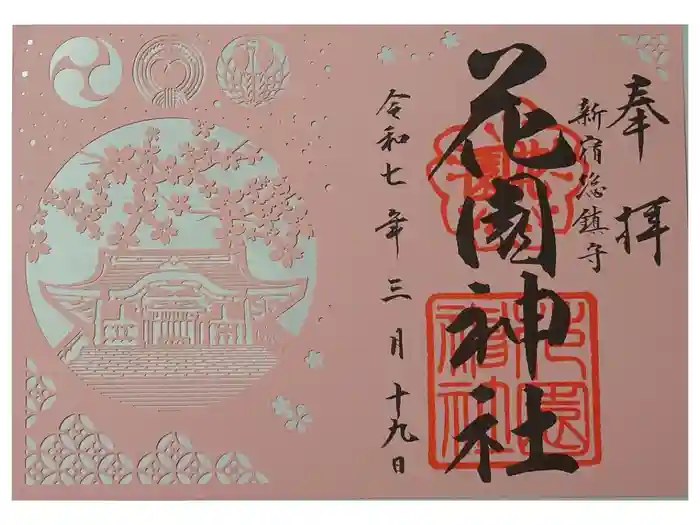 奉拝
新宿総鎮守
花園神社
令和七年三月十九日